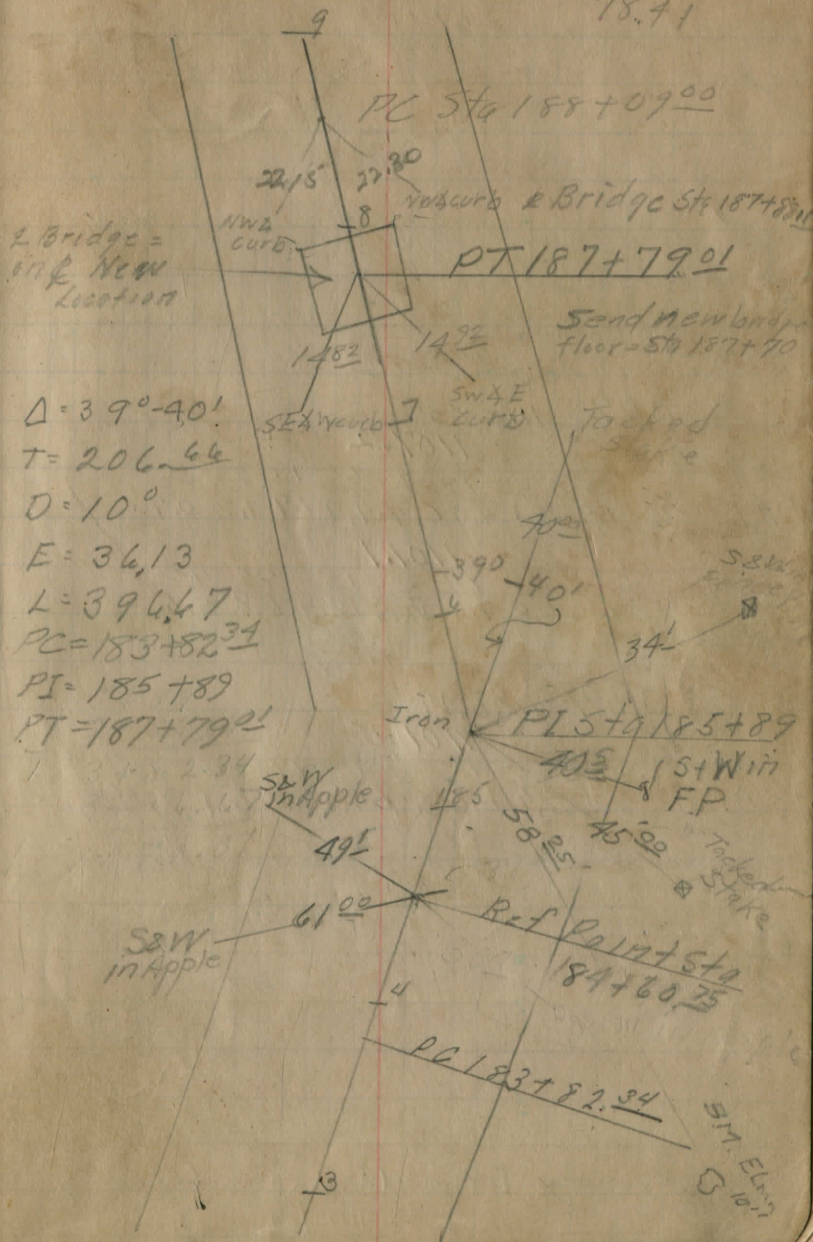 18.41
9
PC Sta 188+09 00
22.15
27.30
NW∡ curb
NW∡ curb
8
℄ Bridge Sta 187+88
℄ Bridge =
in ℄ New
Location
PT 187+79.01
Send new bridge
floor = Sta 187+70
14 82
14 92
SE∡ W curb
SW∡ E
curb
7
Tacked
Δ = 39°-40'
T = 206.66
D = 10°
E = 36.13
L = 396.67
PC = 183+82 34
PI = 185+89
PT = 187+79 01
39°-40'
S&W in
34 1
Iron
PI Sta 185+89
40 5
S+W in
F.P.
185
58 25
45 00
Tacked
Stake
S&W
in Apple
49 1
61 00
S&W
in Apple
Ref Point Sta
184+60.75
4
PC 183+82.34
B.M. Elm
10"
3